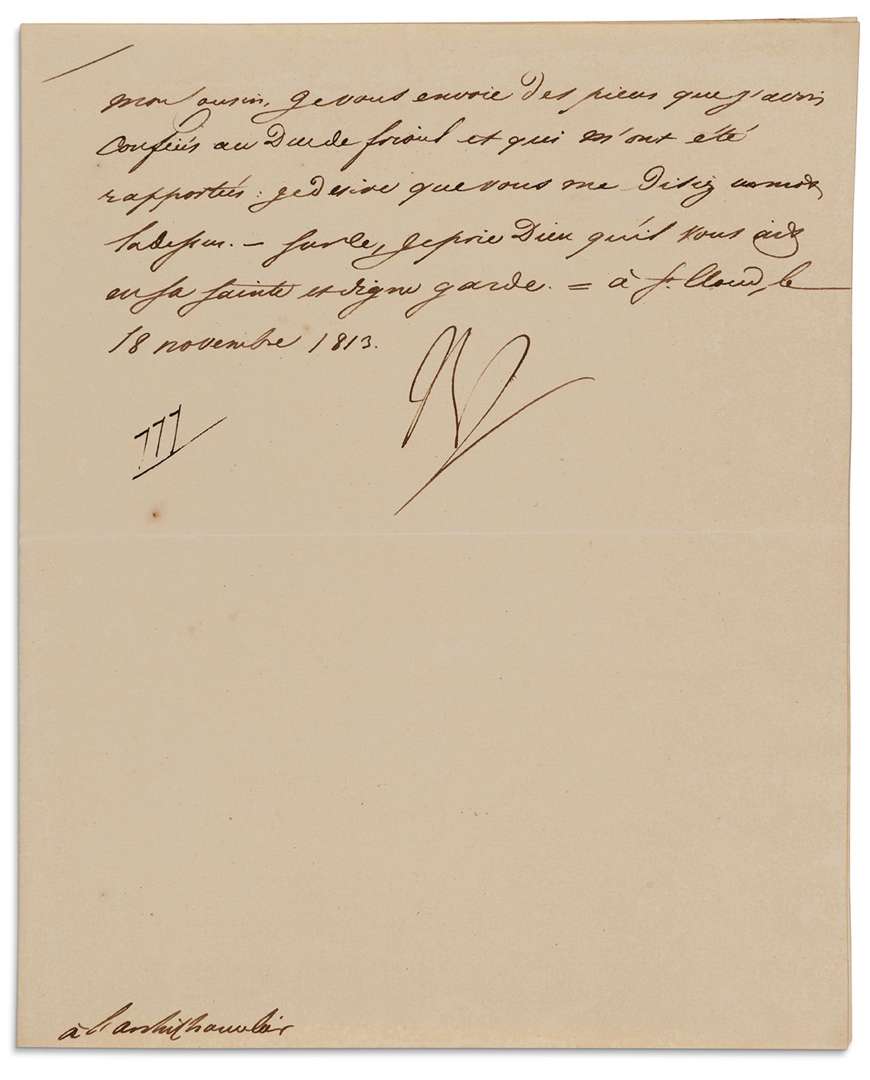 mon Cousin, je vous envoie des pieces que j'avois
Confiées au Duc de frioul et qui m'ont été
rapportées: je desire que vous me disiez un mot
ladessus. — Sur ce, je prie Dieu qu'il vous ait
en sa sainte et digne garde. = à St. Cloud, le
18 novembre 1813.
Np
777
à l'archichancelier